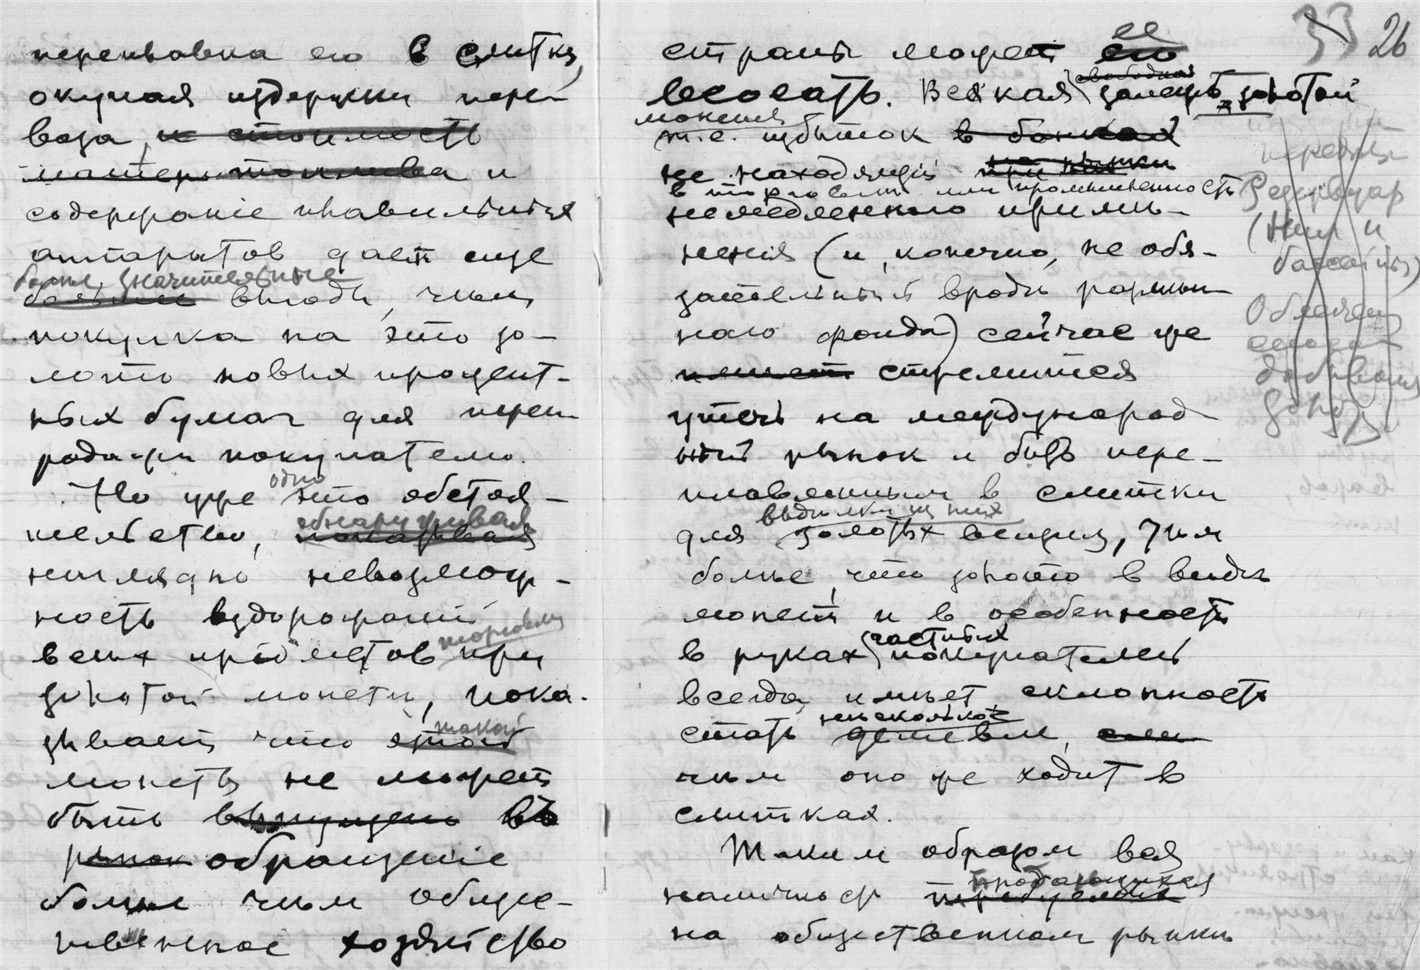 переплавка его в слитки,
окупая издержки пере-
воза, и стоимость
материи топлива и
содержание плавильных
аппаратов дает еще
более значительные
большия выгоды, чем
покупка на это зо-
лото новых процент-
ных бумаг для пере-
родачи покупателю.
Но уже одно это обстоя-
тельство, обнаруживая
показывая
наглядно невозмож-
ность вздорожания
всех продуктов торговли при
золотой монете, пока-
зывает что такой этой
монеты не может
быть выпущено въ
рынок обращение
более чем обще-
твенное хозяйство
33 26
ее
страны может его
всосать. Всякая свободная золотой
монета
т.е. избыток в банках
не находящий при рынки
в торговле или промышленности
немедленного приме-
нения (и, конечно, не обя-
зательный вроде размен-
ного фонда) сейчас же
стремится
утечь на международ-
ный рынок и быть пере-
плавленным в слитки
для выделки из них
золотых вещей, тем
более, что золото в виде
монеты и в особенности
в руках частных покупателей
всегда имеет склонность
стать несколько дешевле,
чем оно же ходит в
слитках.
Таким образом вся
наличность продающихся
на общественном рынке
передел
Резервуар
(Нил и
бассейны)
Облегчен
способ
добывания
золота